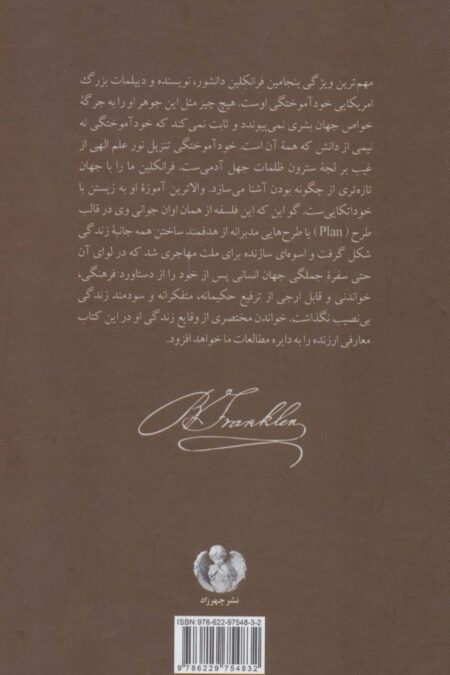 مهم‌ترین ویژگی بنجامین فرانکلین دانشور، نویسنده و دیپلمات بزرگ
امریکایی خودآموختگی اوست. هیچ چیز مثل این جوهر او را به جرگهٔ
خواص جهان بشری نمی‌پیوندد و ثابت نمی‌کند که خودآموختگی نه
نیمی از دانش که همهٔ آن است. خودآموختگی تنزیل نور علم الهی از
غیب بر لجهٔ سترون ظلمات جهل آدمی‌ست. فرانکلین ما را با جهان
تازه‌تری از چگونه بودن آشنا می‌سازد. والاترین آموزهٔ او به زیستن با
خوداتکایی‌ست. گو این که این فلسفه از همان اوان جوانی وی در قالب
طرح (Plan) یا طرح‌هایی مدبرانه از هدفمند ساختن همه جانبهٔ زندگی
شکل گرفت و اسوه‌ای سازنده برای ملت مهاجری شد که در لوای آن
حتی سفرهٔ جملگی جهان انسانی پس از خود را از دستاورد فرهنگی،
خواندنی و قابل ارجی از ترفیع حکیمانه، متفکرانه و سودمند زندگی
بی‌نصیب نگذاشت. خواندن مختصری از وقایع زندگی او در این کتاب
معارفی ارزنده را به دایره مطالعات ما خواهد افزود.
B Franklin
نشر چهرزاد
ISBN: 978-622-97548-3-2
9 786229 754832